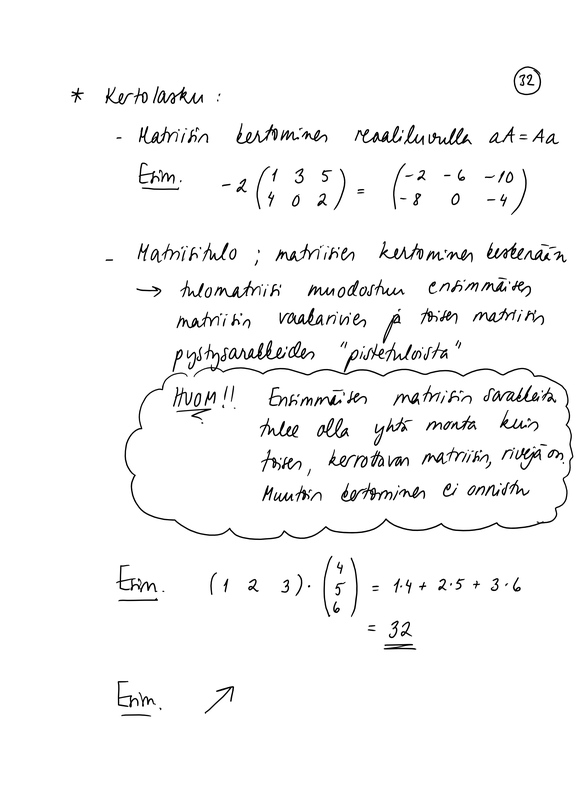 32
* Kertolasku :
- Matriisin kertominen reaaliluvulla aA = Aa
Esim. -2 (1 3 5 = (-2 -6 -10
4 0 2) -8 0 -4)
- Matriisitulo ; matriisien kertominen keskenään
→ tulomatriisi muodostuu ensimmäisen
matriisin vaakarivien ja toisen matriisin
pystysarakkeiden "pistetuloista"
HUOM!! Ensimmäisen matriisin sarakkeita
tulee olla yhtä monta kuin
toisen, kerrottavan matriisin, rivejä on.
Muutoin kertominen ei onnistu
Esim. (1 2 3) · (4 5 6) = 1·4 + 2·5 + 3·6
= 32
Esim. ↗